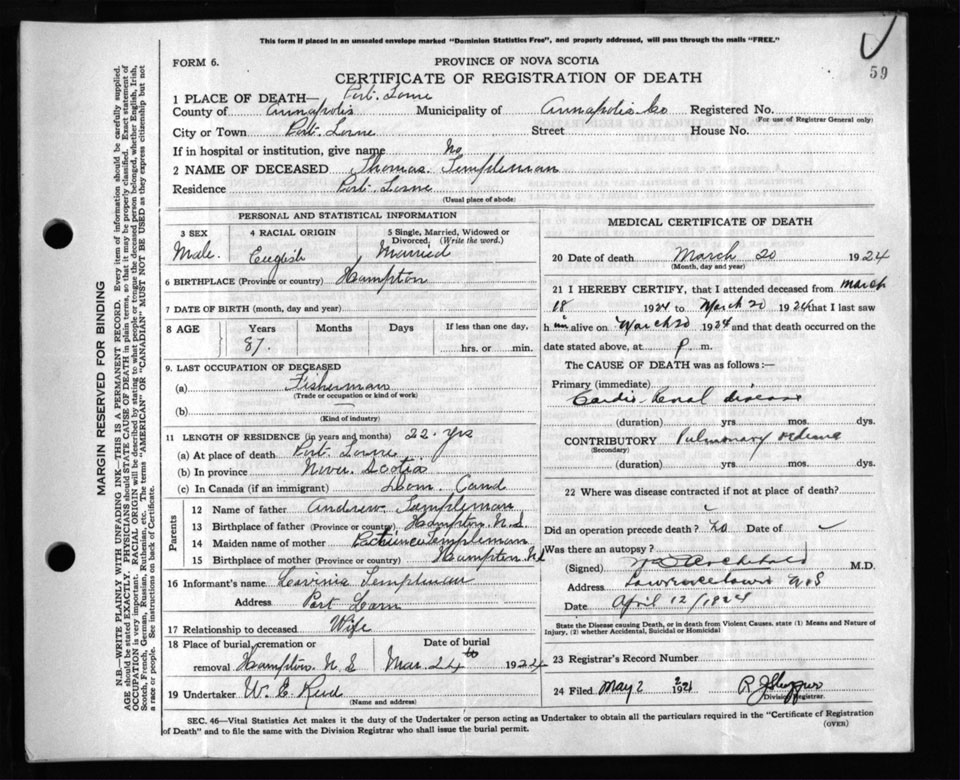 This form if placed in an unsealed envelope marked "Dominion Statistics Free", and properly addressed, will pass through the mails "FREE."
59
FORM 6.
PROVINCE OF NOVA SCOTIA
CERTIFICATE OF REGISTRATION OF DEATH
1 PLACE OF DEATH— Port Lorne
County of Annapolis Municipality of Annapolis Co Registered No.
(For use of Registrar General only)
City or Town Port Lorne Street House No.
If in hospital or institution, give name No
2 NAME OF DECEASED Thomas Templeman
Residence Port Lorne
(Usual place of abode)
PERSONAL AND STATISTICAL INFORMATION
3 SEX Male
4 RACIAL ORIGIN English
5 Single, Married, Widowed or Divorced. (Write the word.) Married
6 BIRTHPLACE (Province or country) Hampton
7 DATE OF BIRTH (month, day and year)
8 AGE Years Months Days If less than one day,
87 hrs. or min.
9. LAST OCCUPATION OF DECEASED
(a) Fisherman
(Trade or occupation or kind of work)
(b)
(Kind of industry)
11 LENGTH OF RESIDENCE (in years and months) 22 yrs
(a) At place of death Port Lorne
(b) In province Nova Scotia
(c) In Canada (if an immigrant) Dom. Cand
Parents
12 Name of father Andrew Templeman
13 Birthplace of father (Province or country) Hampton N.S.
14 Maiden name of mother Templeman
15 Birthplace of mother (Province or country) Hampton
16 Informant's name Lavinia Templeman
Address Port
17 Relationship to deceased Wife
18 Place of burial, cremation or removal Hampton N S
Date of burial Mar. 24 1924
19 Undertaker W. E. Reid
(Name and address)
MEDICAL CERTIFICATE OF DEATH
20 Date of death March 20 1924
(Month, day and year)
21 I HEREBY CERTIFY, that I attended deceased from march
18 1924 to March 20 1924 that I last saw
h im alive on March 20 1924 and that death occurred on
date stated above, at P m.
The CAUSE OF DEATH was as follows:—
Primary (immediate)
Cardio-renal disease
(duration) yrs. mos. dys.
CONTRIBUTORY Pulmonary
(Secondary)
(duration) yrs. mos. dys.
22 Where was disease contracted if not at place of death?
Did an operation precede death? no Date of
Was there an autopsy?
(Signed) Archibald M.D.
Address Lawrencetown N S
Date April 12/1924
State the Disease causing Death, or in death from Violent Causes, state (1) Means and Nature of Injury, (2) whether Accidental, Suicidal or Homicidal
23 Registrar's Record Number
24 Filed May 2 192
Division Registrar.
SEC. 46—Vital Statistics Act makes it the duty of the Undertaker or person acting as Undertaker to obtain all the particulars required in the "Certificate of Registration
of Death" and to file the same with the Division Registrar who shall issue the burial permit.
(OVER)
MARGIN RESERVED FOR BINDING
N.B.—WRITE PLAINLY WITH UNFADING INK—THIS IS A PERMANENT RECORD. Every item of information should be carefully supplied.
AGE should be stated EXACTLY. PHYSICIANS should STATE CAUSE OF DEATH in plain terms, so that it may be properly classified. Exact statement of
OCCUPATION is very important. RACIAL ORIGIN will be described by stating to what people or tongue the deceased person belonged, whether English, Irish,
Scotch, French, German, Russian, Ruthenian, etc. The terms "AMERICAN" OR "CANADIAN" MUST NOT BE USED as they express citizenship but not
a race or people. See instructions on back of Certificate.